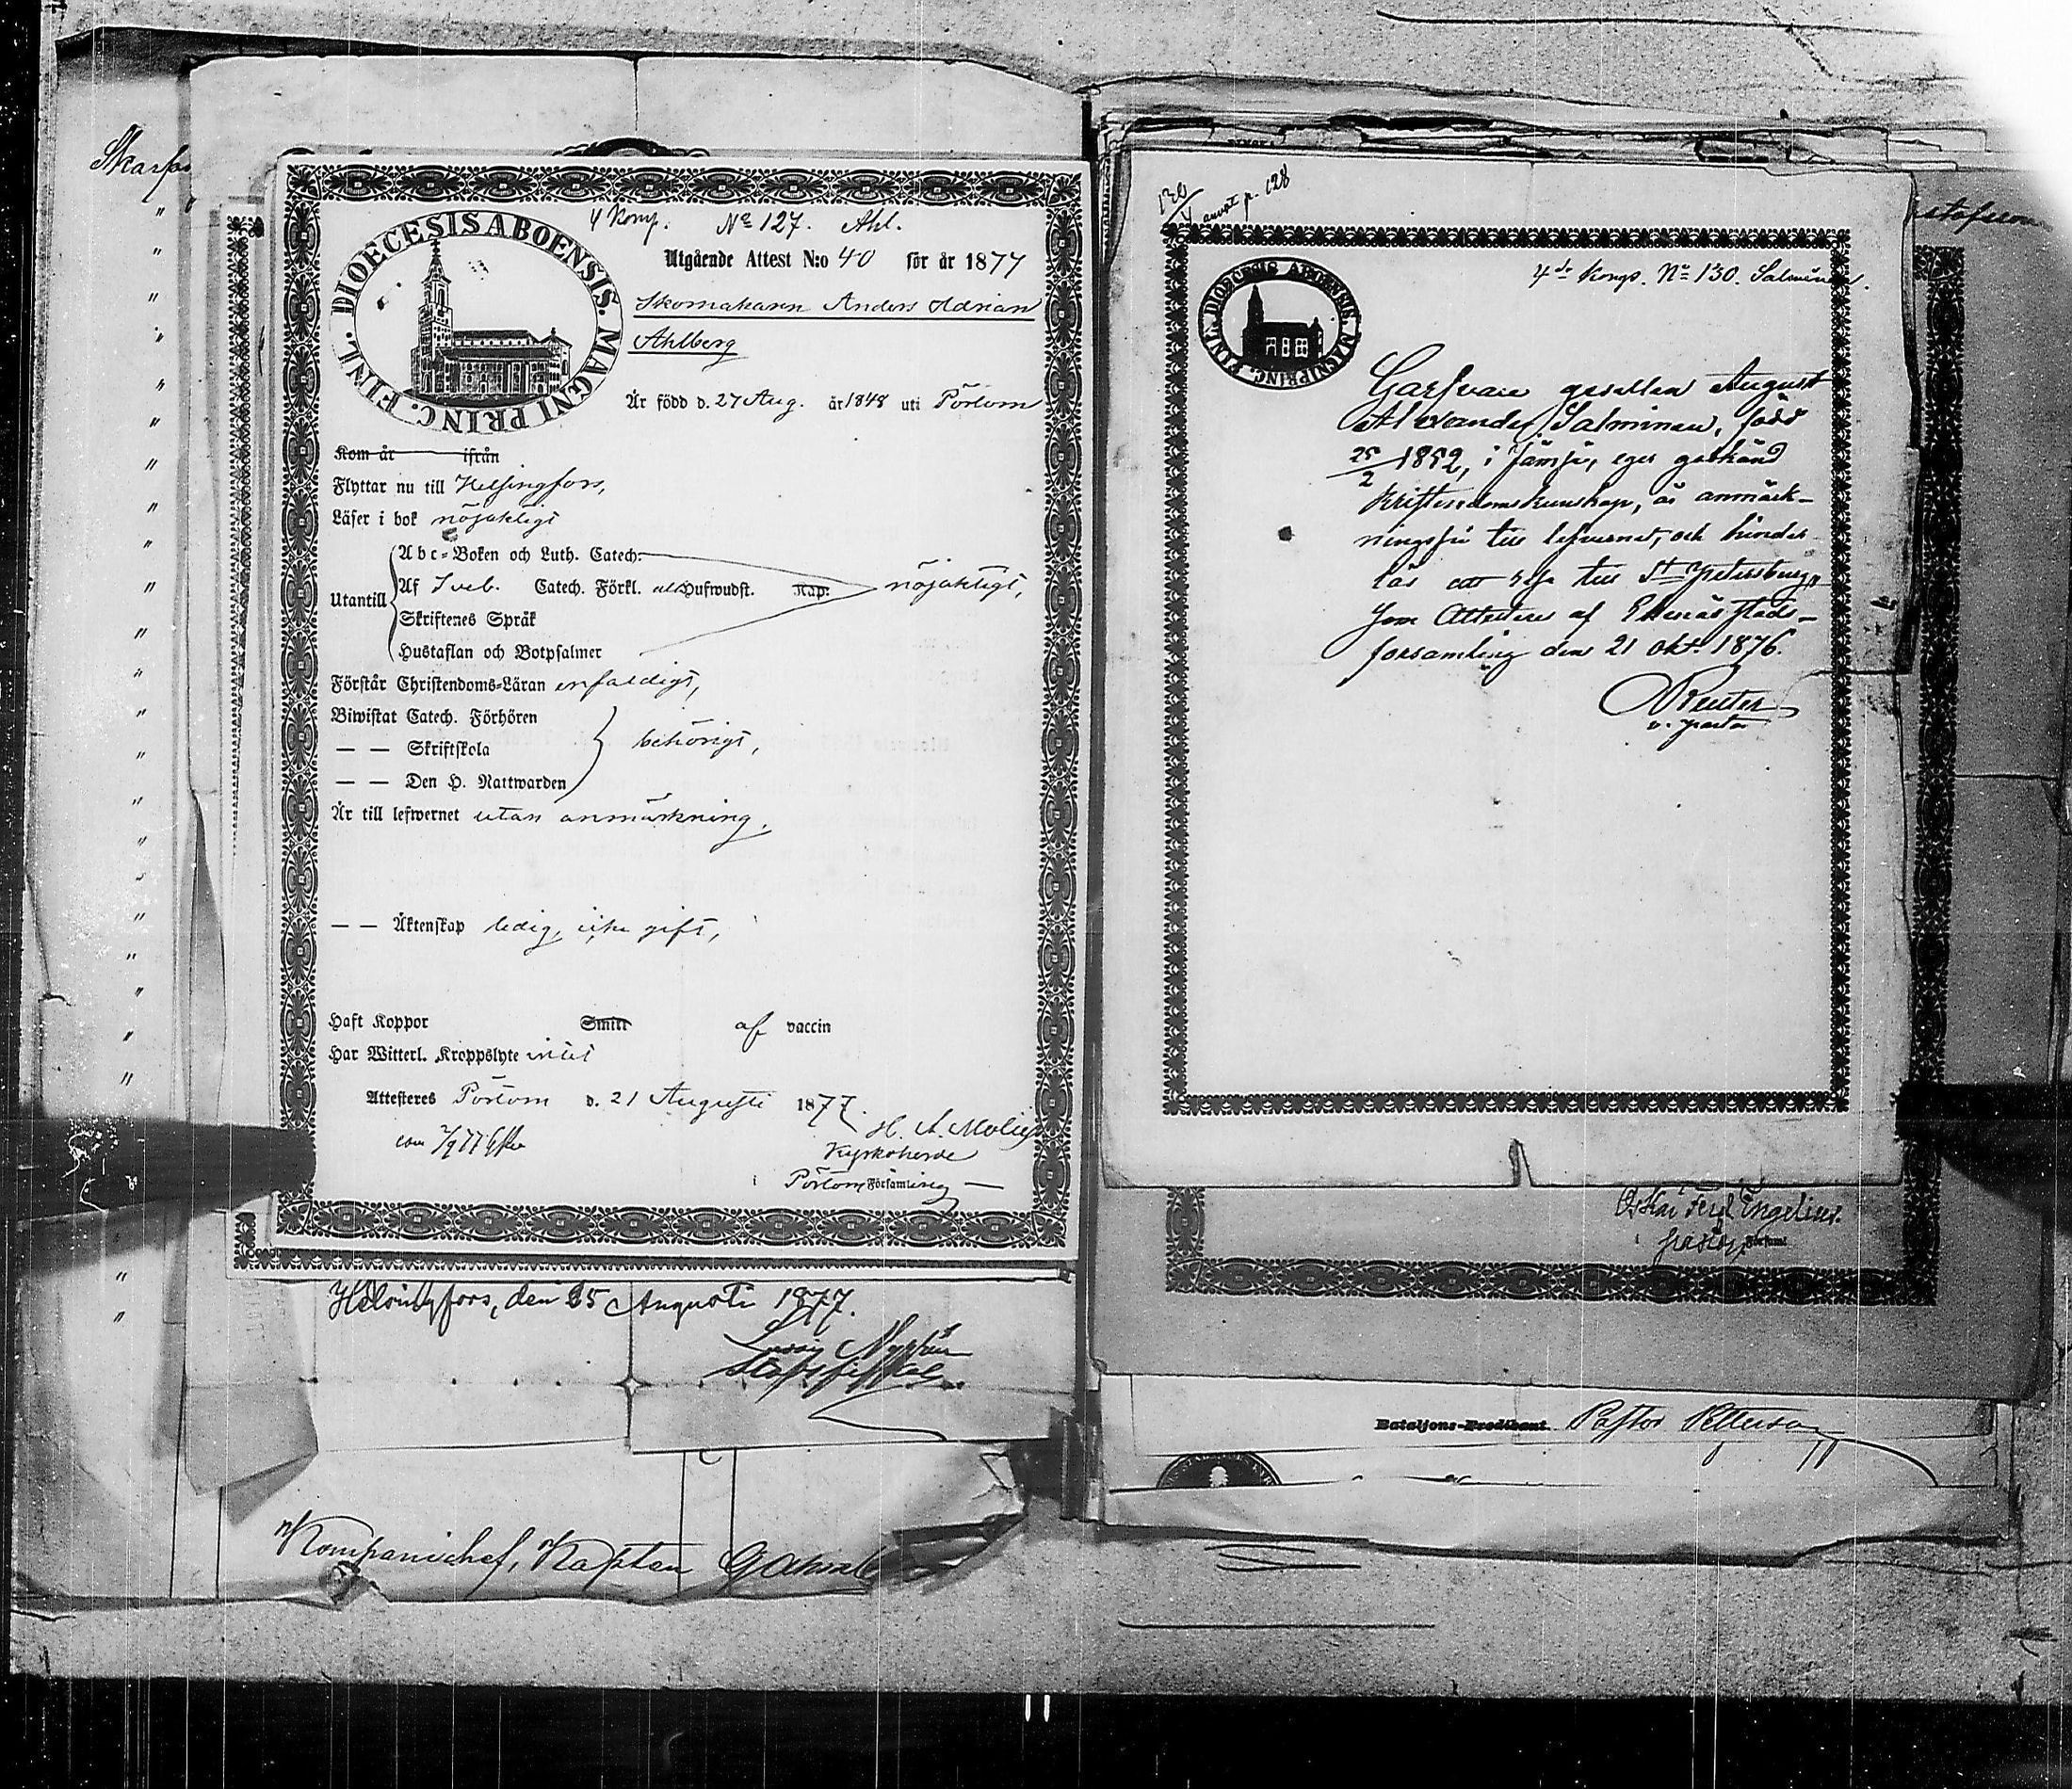 Skarps
4 Komp. No 127. Ahl.
DIOECESIS ABOENSIS. MAGNI PRINC. FINL.
Utgående Attest N:o 40 för år 1877
Skomakaren Anders Adrian
Ahlberg
Är född d. 27 Aug. år 1848 uti Pörtom
Kom år ifrån
Flyttar nu till Helsingfors,
Läser i bok nöjaktigt
Utantill
Abc-Boken och Luth. Catech.
Af Sveb. Catech. Förkl. alla Hufwudst. Kap. nöjaktigt,
Skriftenes Språk
Hustaflan och Botpsalmer
Förstår Christendoms-Läran enfaldigt,
Biwistat Catech. Förhören
— — Skriftskola behörigt,
— — Den H. Nattwarden
Är till lefwernet utan anmärkning.
— — Äktenskap ledig, icke gift,
Haft Koppor Smitt af vaccin
Har Witterl. Kroppslyte intet
Attesteras Pörtom d. 21 Augusti 1877.
H. A. Molis
Kyrkoherde
i Pörtom Församling
Helsingfors, den 25 Augusti 1877.
Kompanichef, Kapten
130 annat p. 128
4de Komp. No 130. Salminen.
DIOECESIS ABOENSIS. MAGNI PRINC. FINL.
Garfvare gesällen August
Alexander Salminen, född
25/2 1852, i Jämsä, eger godkänd
kristendomskunskap, är anmärk-
ningsfri till lefvernet, och hinder-
lös att resa till St Petersburg,
som Attesteras af Ekenäs stads-
församling den 21 okt. 1876.
Reuter
v. pastor
Oskar Ferd. Engelius.
i Församl.
Bataljons-Predikant Pastor